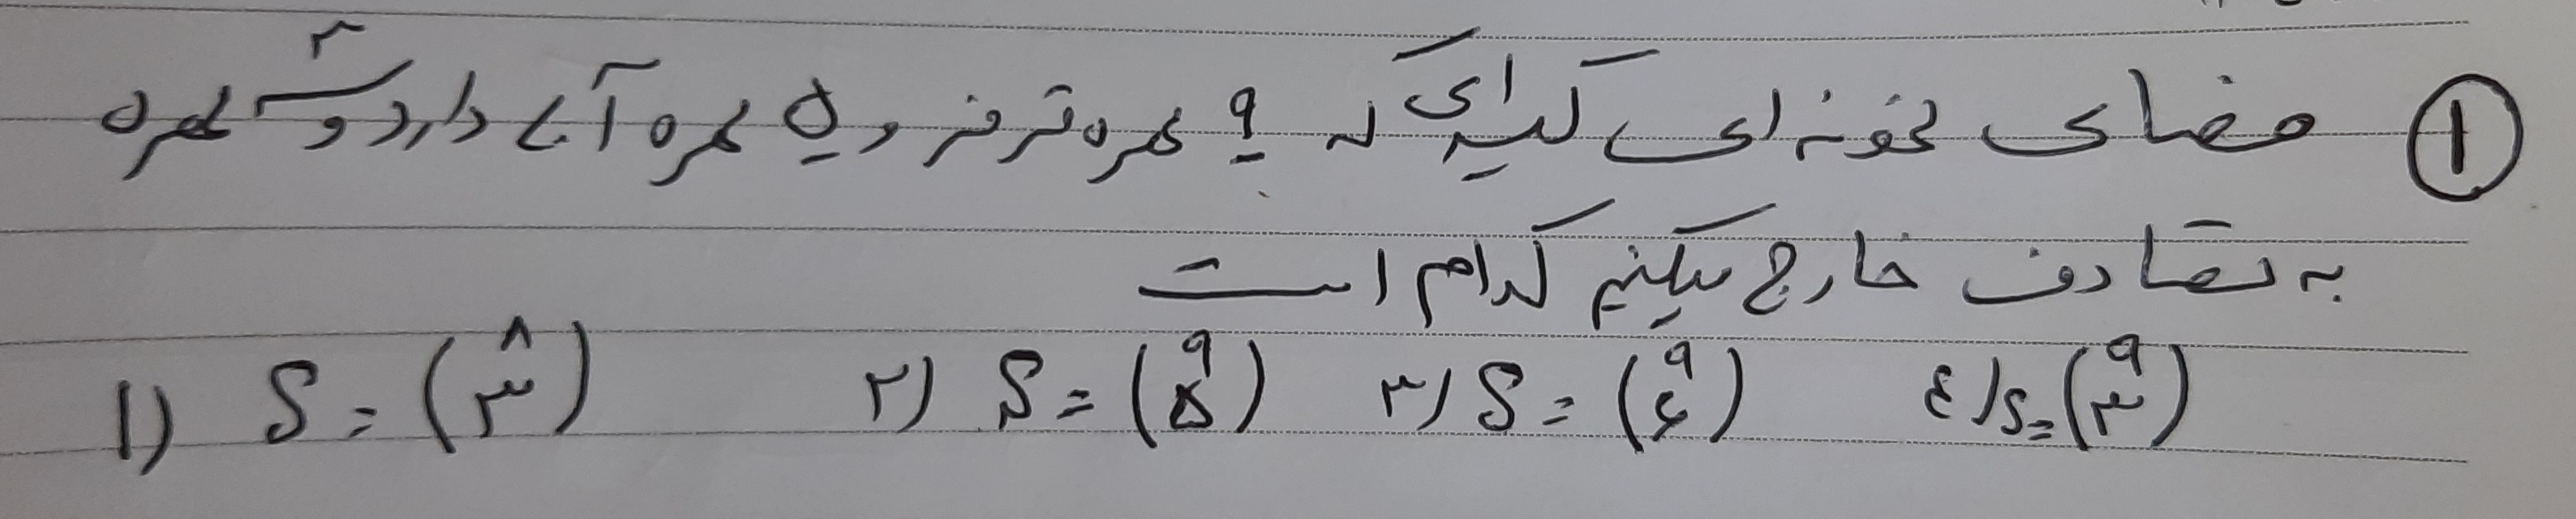 ① فضای نمونه ای کیسه ای که ۹ مهره قرمز و ۵ مهره آبی دارد و ۳ مهره
به تصادف خارج میکنیم کدام است
۱) S = (۸ ۳) ۲) S = (۹ ۵) ۳) S = (۹ ۶) ٤) S = (۹ ۳)